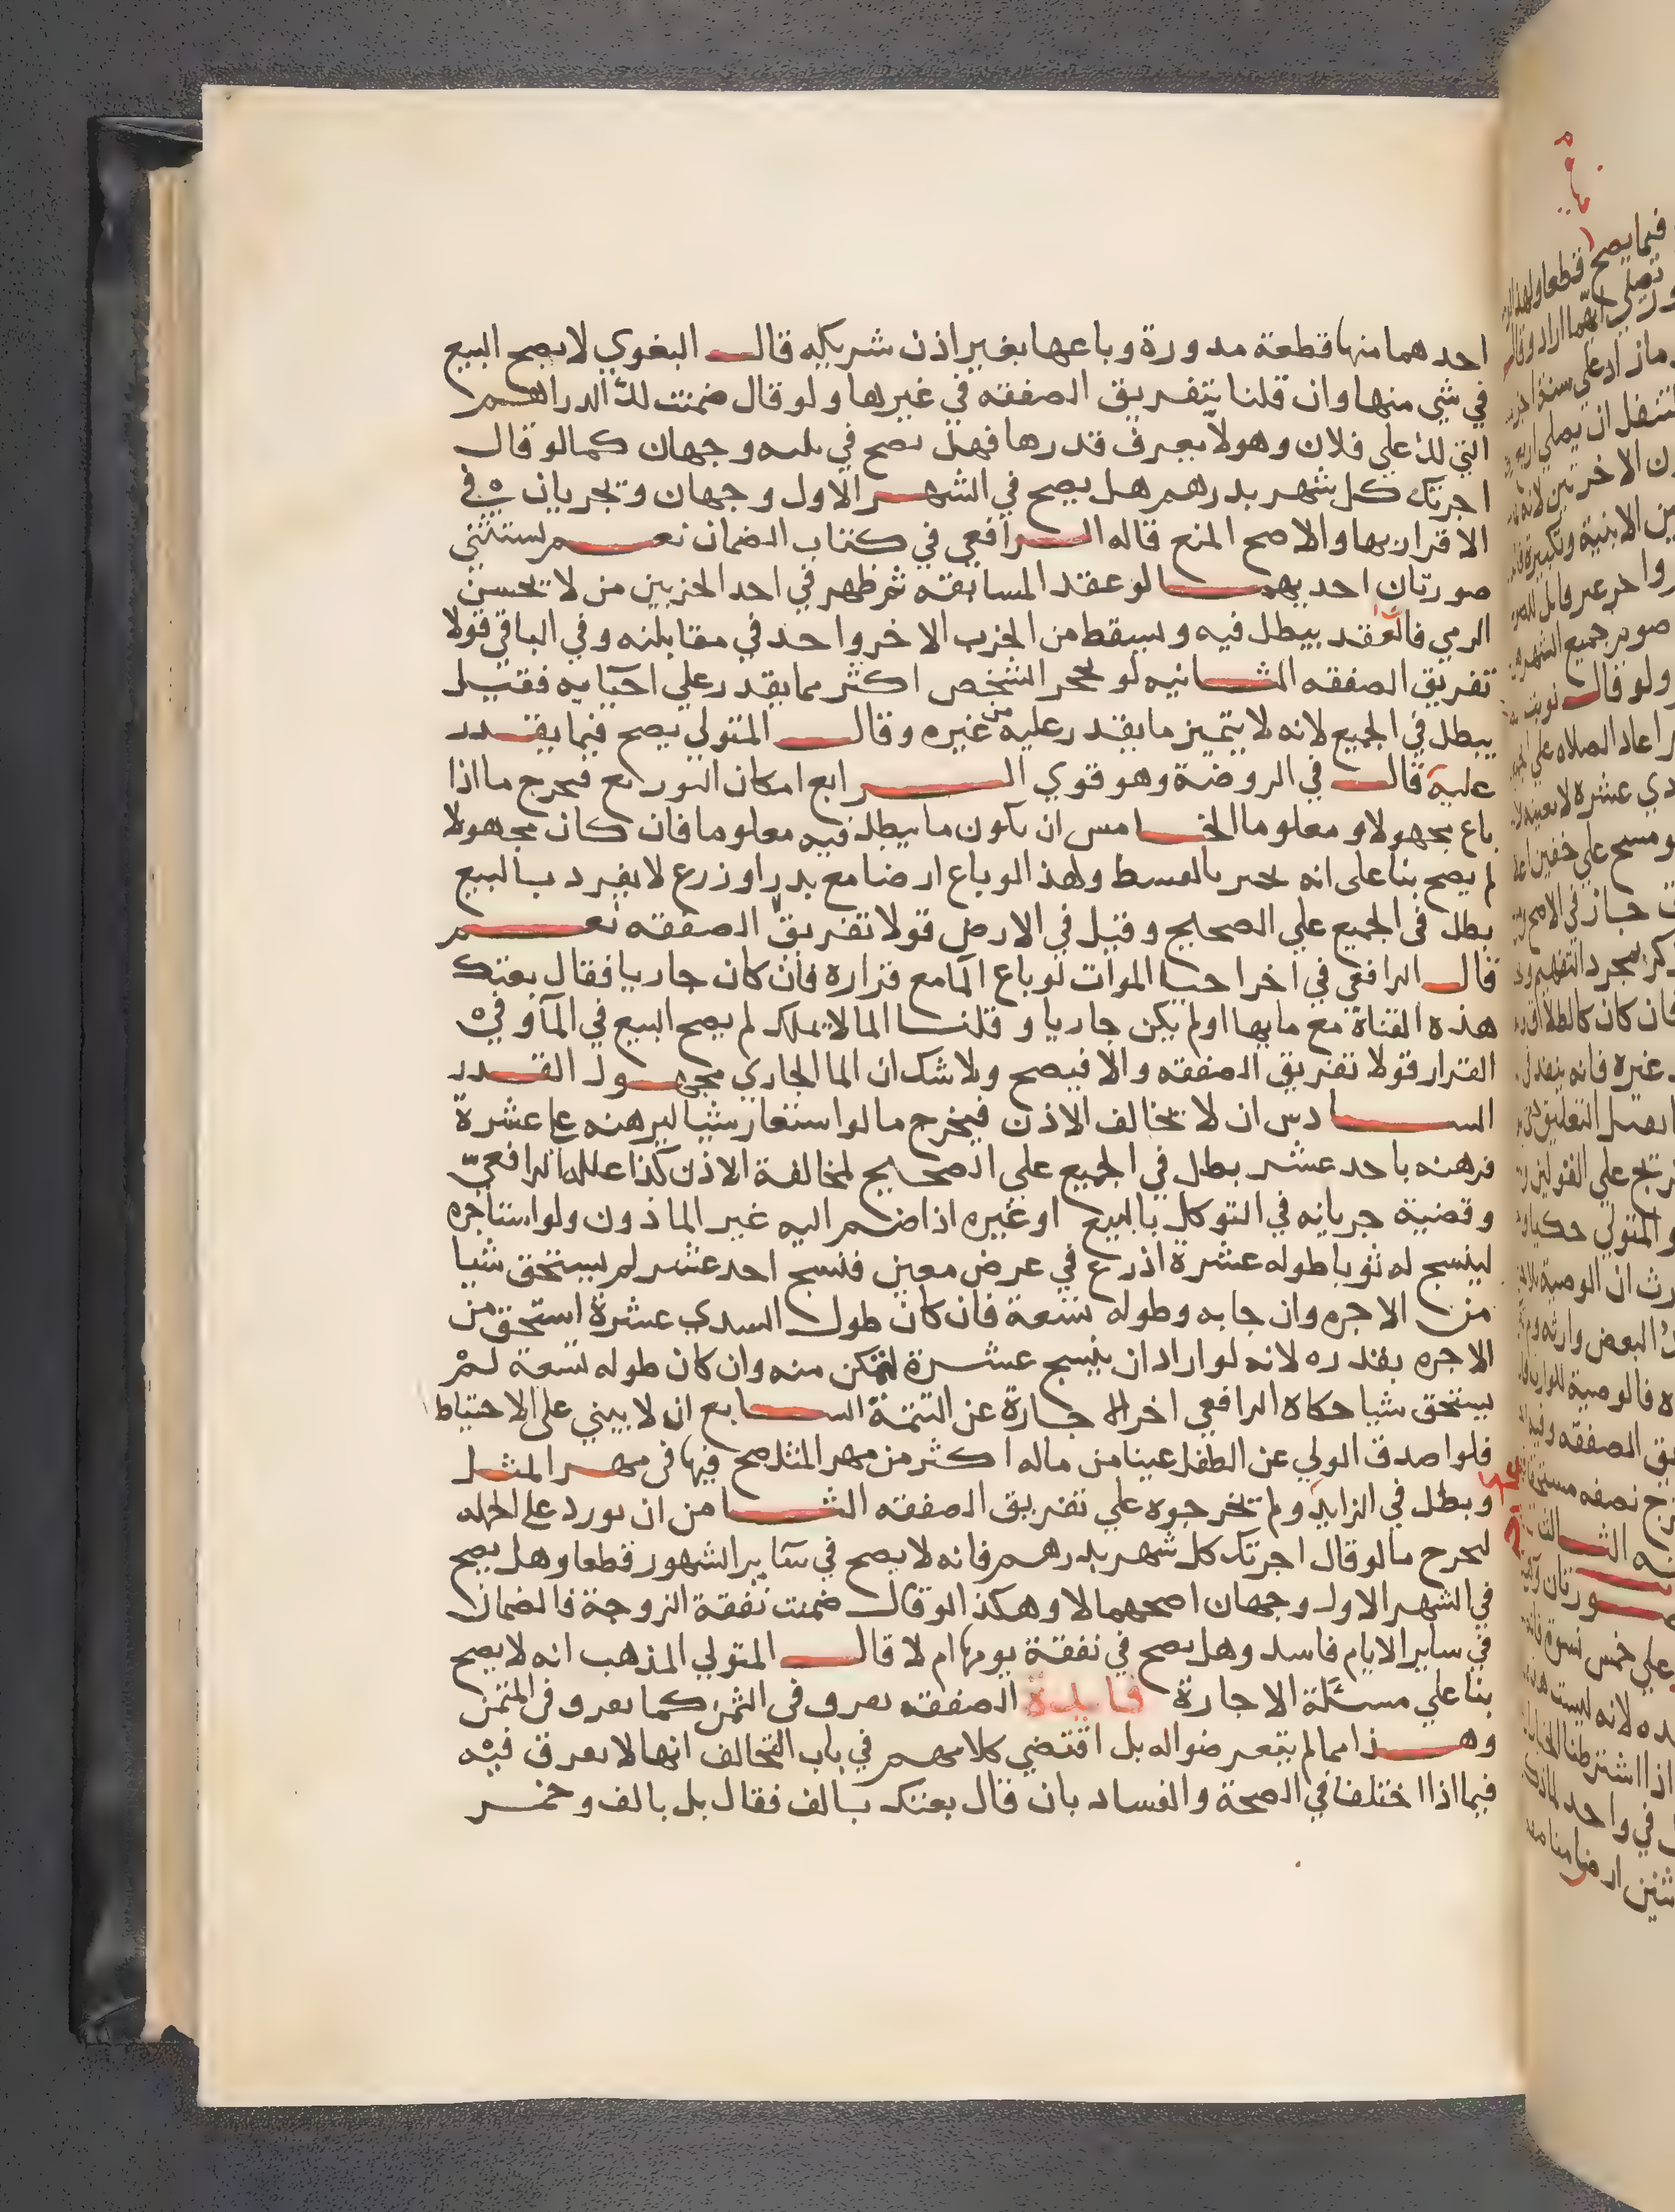 احدهما منها قطعة مدورة وباعها بغير اذن شريكه قال البغوي لا يصح البيع
في شي منها وان قلنا بتفريق الصفقه في غيرها ولو قال ضمنت لك الدراهم
التي لك علي فلان وهو لا يعرف قدرها فهل يصح في ثلثه وجهان كما لو قال
اجرتك كل شهر بدرهم هل يصح في الشهر الاول وجهان وتجريان في
الاقرار بها والاصح المنع قاله الرافعي في كتاب الضمان نعم يستثني
صورتان احديهما لو عقد المسابقه ثم ظهر في احد الحزبين من لا يحسن
الرمي فالعقد يبطل فيه ويسقط من الحزب الاخر واحد في مقابلته وفي الباقي قولا
تفريق الصفقه الثانيه لو تحجر الشخص اكثر مما يقدر علي احيايه فقيل
يبطل في الجميع لانه لا يتميز ما يقدر عليه من غيره وقال المتولي يصح فيما يقدر
عليه قال في الروضة وهو قوي الرابع امكان التوزيع فيخرج ما اذا
باع مجهولا ومعلوما الخامس ان يكون ما يبطل فيه معلوما فان كان مجهولا
لم يصح بنا على انه يخير بالقسط ولهذا لو باع ارضا مع بدر او زرع لا يفرد بالبيع
بطل في الجميع علي الصحيح وقيل في الارض قولا تفريق الصفقه نعم
قال الرافعي في اخر احيا الموات لو باع الما مع قراره فان كان جاريا فقال بعتك
هذه القناة مع مايها او لم يكن جاريا وقلنا الما لا يملك لم يصح البيع في الما وفي
القرار قولا تفريق الصفقه والا فيصح ولا شك ان الما الجاري مجهول القدر
السادس ان لا يخالف الاذن فيخرج ما لو استعار شيا ليرهنه علي عشرة
فرهنه باحد عشر بطل في الجميع علي الصحيح لمخالفة الاذن كذا علله الرافعي
وقضية جريانه في التوكل بالبيع او غيره اذا ضم اليه غير الماذون ولو استاجره
لينسج له ثوبا طوله عشرة اذرع في عرض معين فنسج احد عشر لم يستحق شيا
من الاجره وان جا به وطوله تسعة فان كان طول السدي عشرة استحق من
الاجره بقدره لانه لو اراد ان ينسج عشرة لتمكن منه وان كان طوله تسعة لم
يستحق شيا حكاه الرافعي اخر الاجارة عن التتمة السابع ان لا يبني على الاحتياط
فلو اصدق الولي عن الطفل عينا من ماله اكثر من مهر المثل صح فيها في مهر المثل
وبطل في الزايد ولم يخرجوه علي تفريق الصفقه الثامن ان يورد على الجمله
ليخرج ما لو قال اجرتك كل شهر بدرهم فانه لا يصح في ساير الشهور قطعا وهل يصح
في الشهر الاول وجهان اصحهما لا وهكذا لو قال ضمنت نفقة الزوجة فالضمان
في ساير الايام فاسد وهل يصح في نفقة يومها ام لا قال المتولي المذهب انه لا يصح
بنا علي مسئلة الاجارة فايدة الصفقه تفرق في الثمن كما تفرق في المثمن
وهذا مما لم يتعرضوا له بل اقتضي كلامهم في باب التحالف انها لا تفرق فيه
فيما اذا اختلفا في الصحة والفساد بان قال بعتك بالف فقال بل بالف وخمر